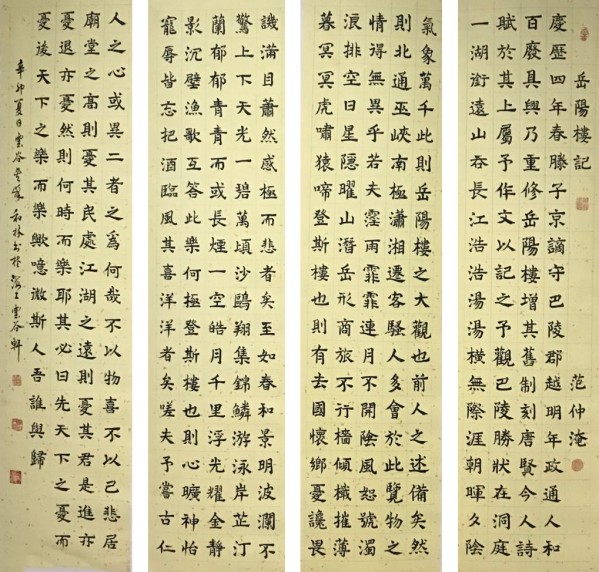 岳陽樓記 范仲淹
慶歷四年春滕子京謫守巴陵郡越明年政通人和
百廢具興乃重修岳陽樓增其舊制刻唐賢今人詩
賦於其上屬予作文以記之予觀巴陵勝狀在洞庭
一湖銜遠山吞長江浩浩湯湯橫無際涯朝暉夕陰
氣象萬千此則岳陽樓之大觀也前人之述備矣然
則北通巫峽南極瀟湘遷客騷人多會於此覽物之
情得無異乎若夫霪雨霏霏連月不開陰風怒號濁
浪排空日星隱曜山潛岳形商旅不行檣傾檝摧薄
暮冥冥虎嘯猿啼登斯樓也則有去國懷鄉憂讒畏
譏滿目蕭然感極而悲者矣至如春和景明波瀾不
驚上下天光一碧萬頃沙鷗翔集錦鱗游泳岸芷汀
蘭郁郁青青而或長煙一空皓月千里浮光耀金靜
影沉璧漁歌互答此樂何極登斯樓也則心曠神怡
寵辱皆忘把酒臨風其喜洋洋者矣嗟夫予嘗古仁
人之心或異二者之為何哉不以物喜不以己悲居
廟堂之高則憂其民處江湖之遠則憂其君是進亦
憂退亦憂然則何時而樂耶其必曰先天下之憂而
憂後天下之樂而樂歟噫微斯人吾誰與歸
辛卯夏日雲谷和林書於海上雲谷軒